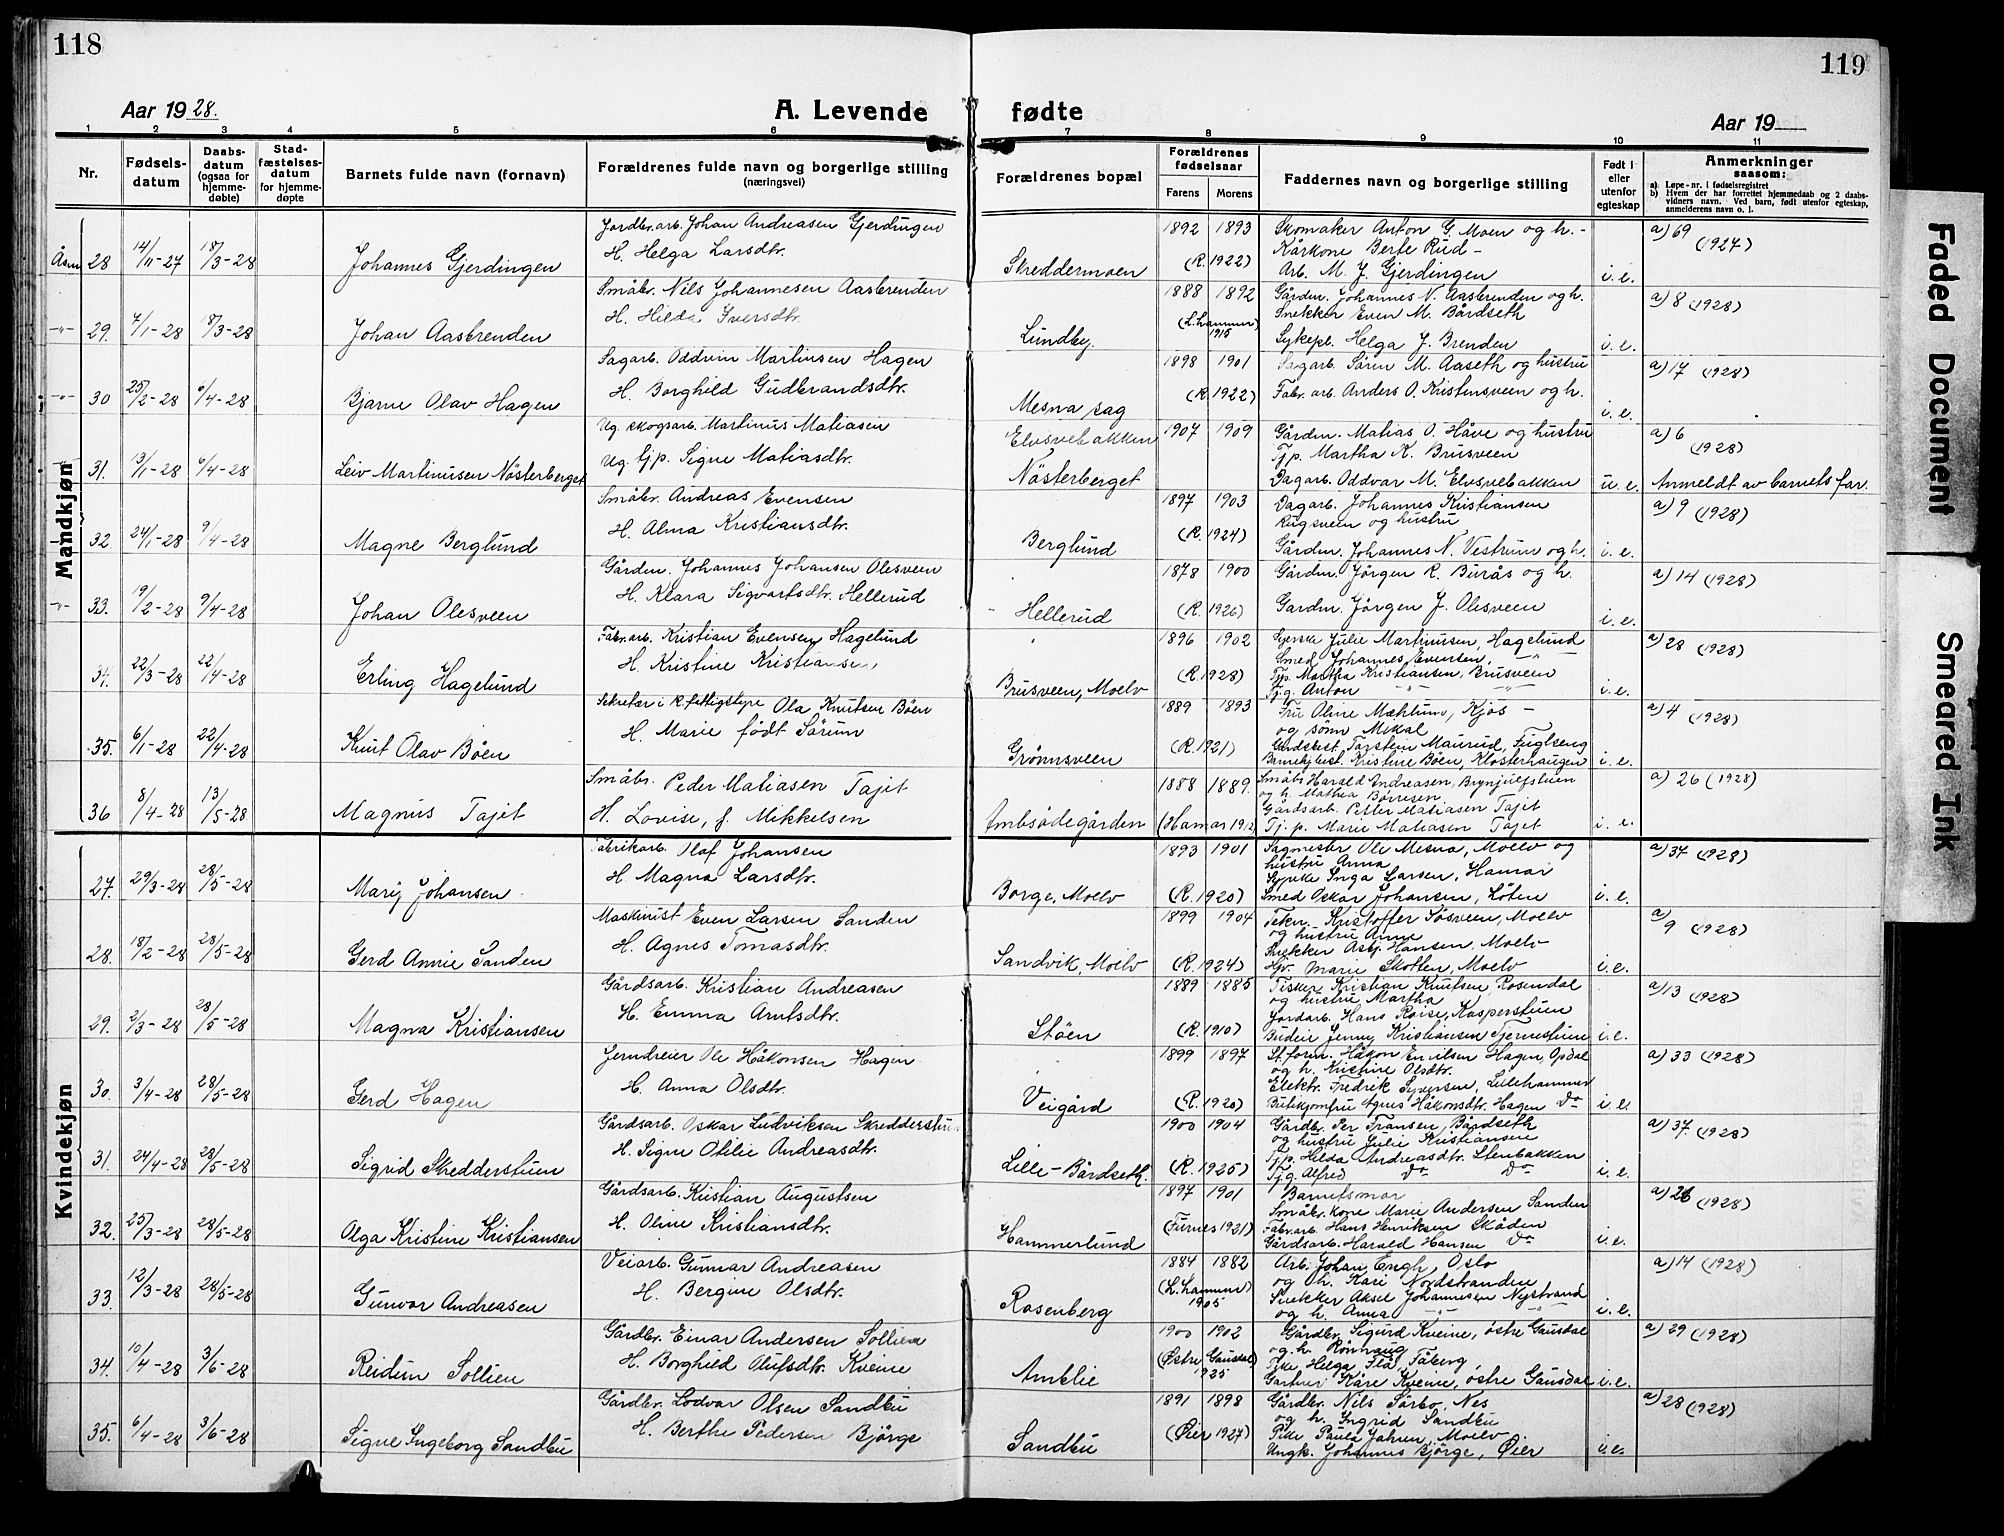 118
119
Aar 1928.
A. Levende fødte
Aar 19
1 2 3 4 5 6 7 8 9 10 11
Nr.
Fødsels-
datum
Daabs-
datum
(ogsaa for
hjemme-
døbte)
Stad-
fæstelses-
datum
for hjemme-
døpte
Barnets fulde navn (fornavn)
Forældrenes fulde navn og borgerlige stilling
(næringsvei)
Forældrenes bopæl
Forældrenes
fødselsaar
Farens Morens
Faddernes navn og borgerlige stilling
Født i
eller
utenfor
egteskap
Anmerkninger
saasom:
a) Løpe-nr. i fødselsregistret
b) Hvem der har forrettet hjemmedaab og 2 daabs-
vidners navn. Ved barn, født utenfor egteskap,
anmelderens navn o. l.
Mandkjøn
Jordbr.arb. Johan Andreasen Gjerdingen 1892 1893 Skomaker Anton G. Moen og h. - a) 69
(1927)
28 14/11-27 18/3-28 Johannes Gjerdingen H. Helga Larsdtr. Skreddermoen (R. 1922) Kårkone Berte Rud -
Arb. M. J. Gjerdingen i.e.
Småbr. Nils Johannesen Aasbrenden 1888 1892 Gårdm. Johannes N. Aasbrenden og h. a) 8 (1928)
29. 7/1-28 18/3-28 Johan Aasbrenden H. Hilda Iversdtr. Lundby. (L.hammer 1915) Snekker Even M. Bårdseth
Sykepl. Helga J. Brenden i.e.
Sagarb. Oddvin Martinsen Hagen 1898 1901 Sagarb. Sören M. Aaseth og hustru a) 17 (1928)
30 25/2-28 6/4-28 Bjarne Olav Hagen H. Borghild Gudbrandsdtr. Mesna sag (R. 1922) Fabr. arb. Anders O. Kristensveen og h. i.e.
Ug. skogsarb. Martinus Matiasen Elvsvebakken 1907 1909 Gårdm. Matias O. Håve og hustru a) 6
(1928)
31. 13/1-28 6/4-28 Leiv Martinusen Nösterberget Ug. tjp. Signe Matiasdtr. Nösterberget Tjp. Martha K. Brusveen
Dagarb. Oddvar M. Elvsvebakken u.e. Anmeldt av barnets far.
Småbr. Andreas Evensen 1897 1903 Dagarb. Johannes Kristiansen a) 9 (1928)
32 24/1-28 9/4-28 Magne Berglund H. Alma Kristiansdtr. Berglund (R. 1924) Rugsveen og hustru
Gårdm. Johannes N. Vestrum og h. i.e.
Gårdm. Johannes Johansen Olesveen 1878 1900 Gårdm. Jörgen R. Burås og h. a) 14 (1928)
33. 19/2-28 9/4-28 Johan Olesveen H. Klara Sigvartsdtr. Hellerud Hellerud (R. 1926) Gardm. Jörgen J. Olesveen i.e.
Fabr.arb. Kristian Evensen Hagelund 1896 1902 Syerske Julie Martinusen, Hagelund a) 28 (1928)
34. 22/3-28 22/4-28 Erling Hagelund H. Kristine Kristiansen, Brusveen, Moelv (R. 1928) Smed Johannes Evensen, -"-
Tjp. Martha Kristiansen, Brusveen
Tj.g. Anton -"- -"- i.e.
Sekretær i R. fattigstyre Ola Knutsen Böen 1889 1893 Fru Oline Mæhlum, Kjos - a) 4 (1928)
35. 6/1-28 22/4-28 Knut Olav Böen H. Marie født Sörum Grönnsveen (R. 1921) og sönn Mikal
Gårdsbest. Torstein Maurud, Fuglseng
Barnehjbest. Kristine Böen, Klosterhaugen i.e.
Småbr. Peder Matiasen Tajet 1888 1889. Småbr. Harald Andreasen, Brynjulfstuen a) 26 (1928)
36 8/4-28 13/5-28 Magnus Tajet H. Lovise, f. Mikkelsen Ambsödegården (Hamar 1912) og h. Mathea Börresen
Gårdsarb. Petter Matiasen Tajet
Tj.p. Marie Matiasen Tajet i.e.
Kvindekjøn
Fabrikarb. Olaf Johansen 1893 1901 Sagmester Ole Mesna, Moelv og a) 37 (1928)
27. 29/3-28 28/5-28 Mary Johansen H. Magna Larsdtr. Borge, Moelv (R. 1920) hustru Anna
Sypike Inga Larsen, Hamar
Smed Oskar Johansen, Löten i.e.
Maskinist Even Larsen Sanden 1899 1904 Tekn. Kristoffer Såsveen, Moelv a) 9 (1928)
28. 18/2-28 28/5-28 Gerd Annie Sanden H. Agnes Tomasdtr. Sandvik, Moelv (R. 1924) og hustru Anne
Snekker Asbj. Hansen, Moelv
Hjv. Marie Skotten, Moelv i.e.
Gårdsarb. Kristian Andreasen 1889 1885 Tisker Kristian Knutsen, Rosendal a) 13 (1928)
29. 2/3-28 28/5-28 Magna Kristiansen H. Emma Arntsdtr. Stöen (R. 1910) og hustru Martha
Jordarb. Hans Roise, Kasperstuen
Budeie Jenny Kristiansen Tjernstuen i.e.
Jerndreier Ole Håkonsen Hagen 1899 1897 St.form. Håkon Emilsen Hagen, Opdal a) 33 (1928)
30. 3/4-28 28/5-28 Gerd Hagen H. Anna Olsdtr. Veigård (R. 1920) og h. Kristine Olsdtr.
Elektr. Fredrik Syversen, Lillehammer
Butikjomfru Agnes Håkonsdtr. Hagen Do i.e.
Gårdsarb. Oskar Ludviksen Skredderstuen 1900 1904 Gårdbr. Per Fransen, Bårdseth a) 37. (1928)
31. 24/4-28 28/5-28 Sigrid Skredderstuen H. Signe Otilie Andreasdtr. Lille-Bårdseth. (R. 1925) og hustru Julie Kristiansen
Tjp. Helda Andreasdtr. Stenbakken
Tj.g. Alfred Do Do i.e.
Gårdsarb. Kristian Augustsen 1897 1901 Barnets mor a) 26 (1928)
32. 25/3-28 28/5-28 Olga Kristine Kristiansen H. Oline Kristiansdtr. Hammerlund (Furnes 1921) Småbr. kone Marie Andersen Sanden
Fabr.arb. Hans Henriksen Skåden
Gårdsarb. Harald Hansen Do i.e.
Veiarb. Gunnar Andreasen 1884 1882 Arb. Johan Engh, Oslo a) 14 (1928)
33. 12/3-28 28/5-28 Gunvor Andreasen H. Bergine Olsdtr. Rosenberg (L.hammer 1905) og h. Kari Nordstranden
Snekker Aksel Johannesen Nystrand
og h. Anna -"- -"- i.e.
Gårdbr. Einar Andersen Sollien 1900 1902 Gårdbr. Sigurd Kveine, östre Gausdal a) 29 (1928)
34. 10/4-28 3/6-28 Reidun Sollien H. Borghild Olufsdtr. Kveine Amelie (Østre Gausdal 1925) og h. Rönnaug
Pike Helga Flå, Fåberg
Gartner Kåre Kveine, östre Gausdal i.e.
Gårdbr. Lodvar Olsen Sandbu 1891 1898 Gårdbr. Nils Sörbo, Nes a) 28 (1928)
35. 6/4-28 3/6-28 Signe Ingeborg Sandbu H. Berthe Pedersen Björge Sandbu (Øier 1927) og h. Ingrid Sandbu
Pike Paula Jahren, Moelv
Ungk. Johannes Björge, Øier i.e.
Faded Document
Smeared Ink